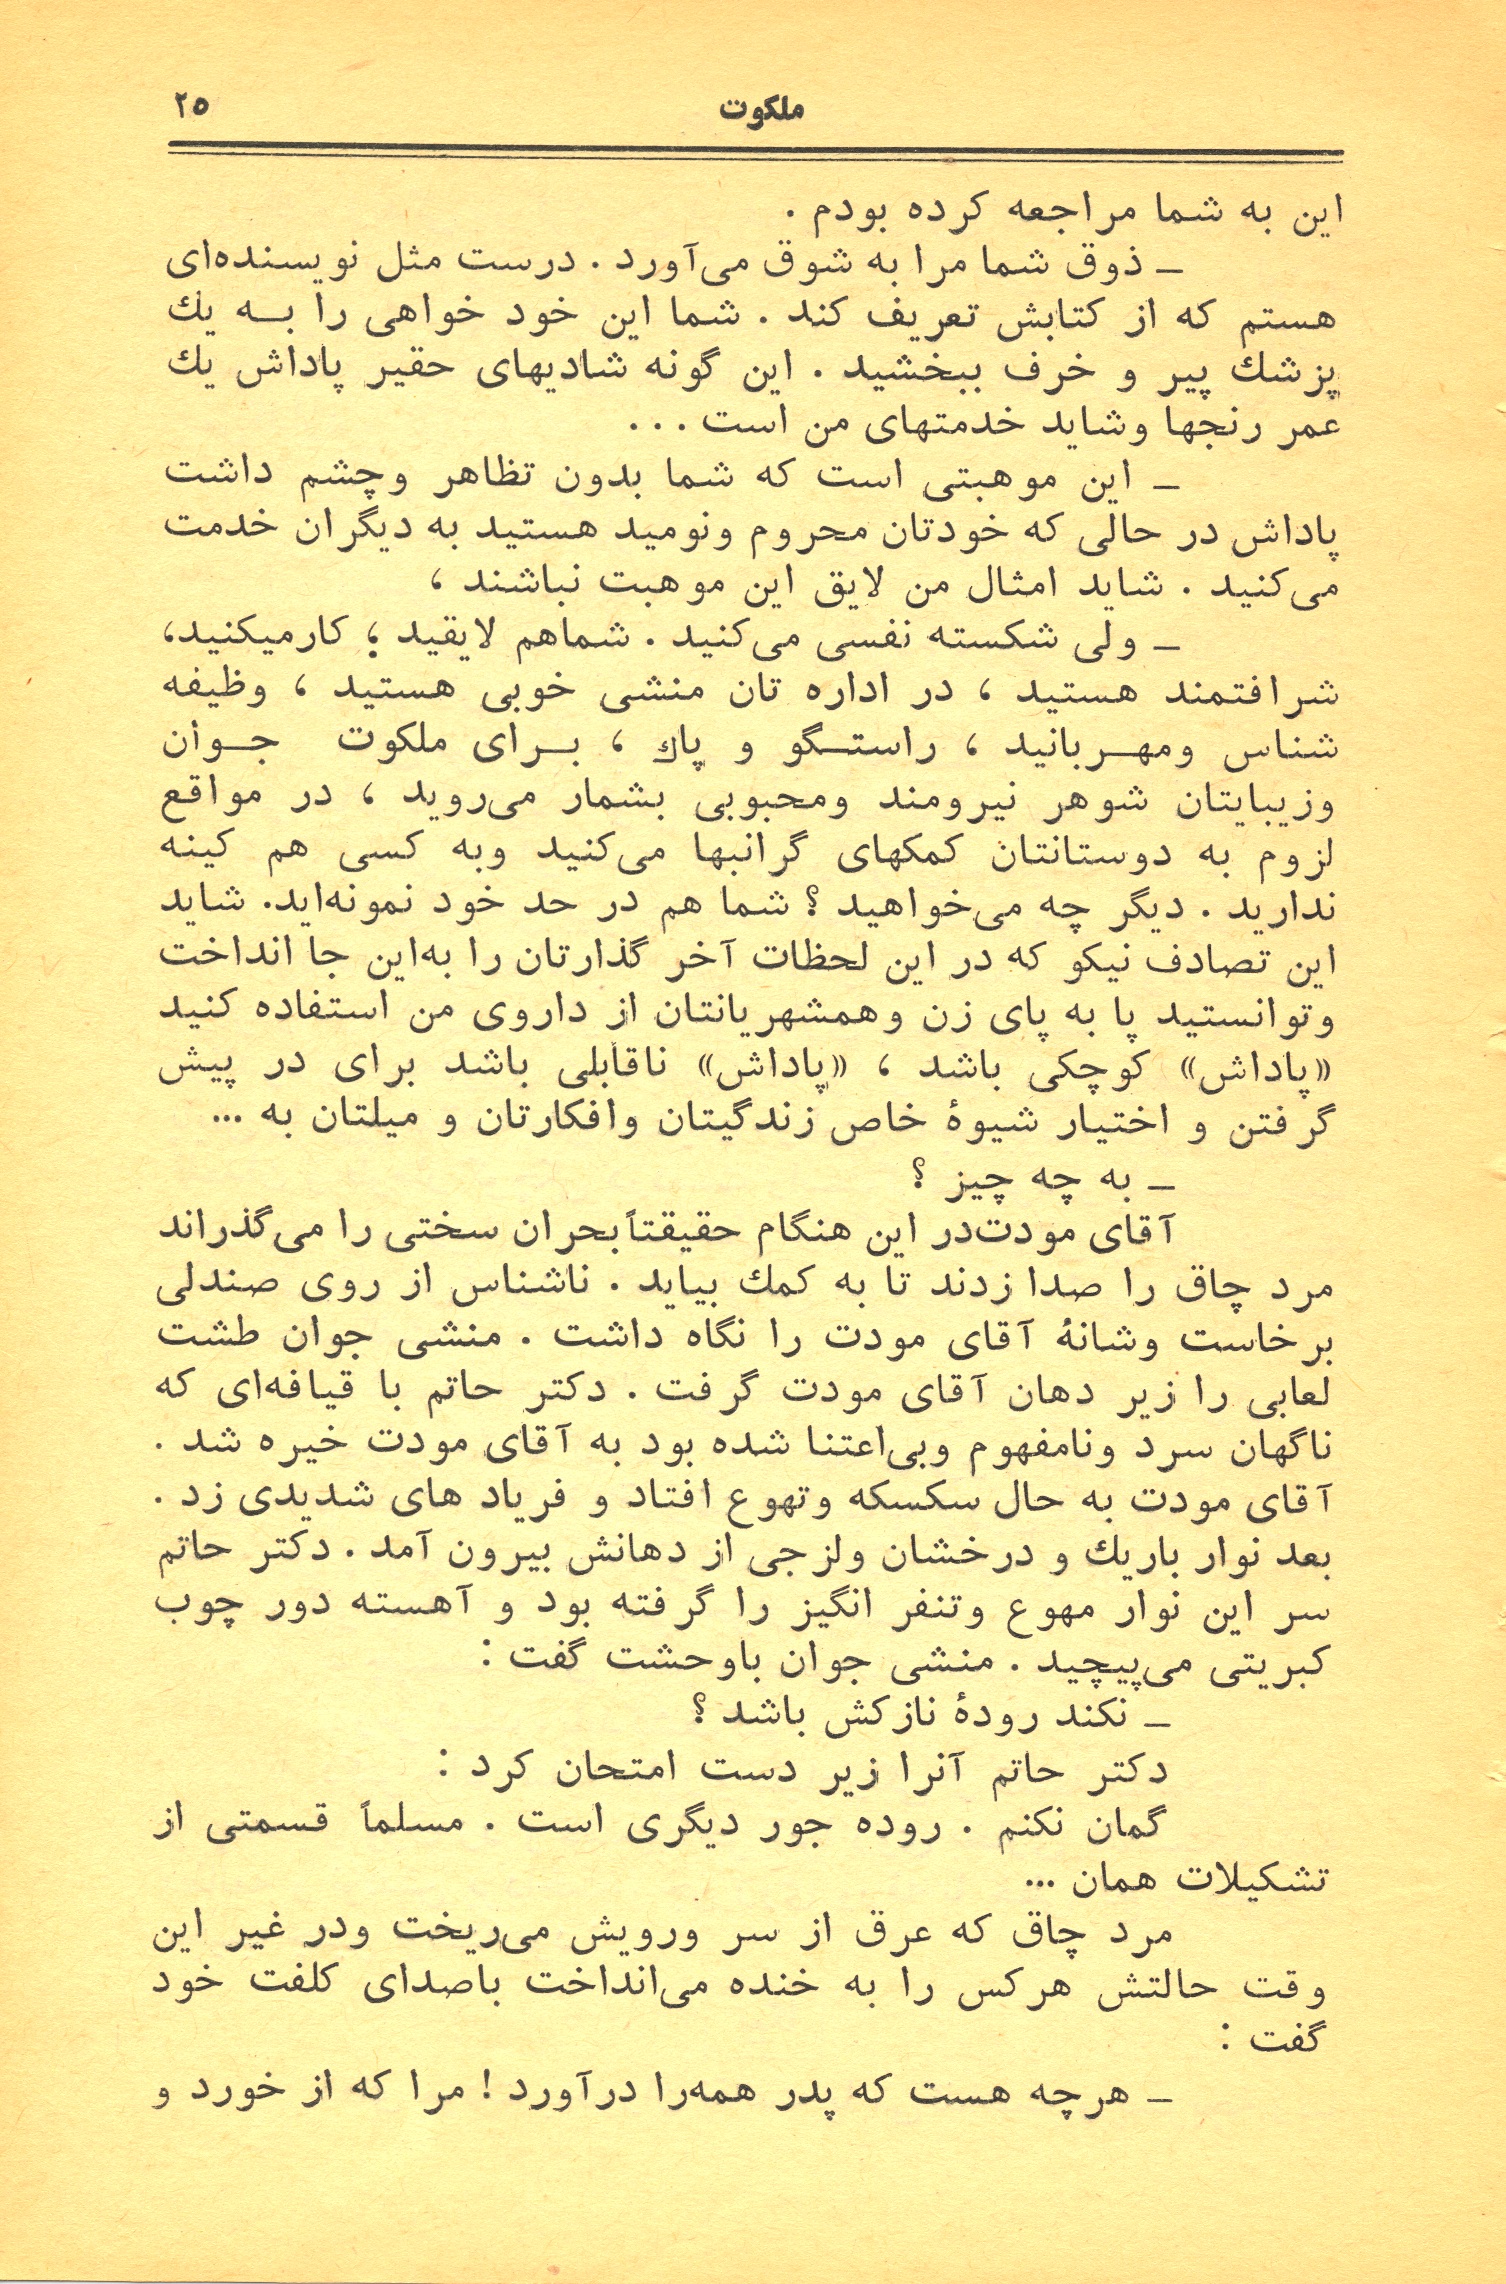 ملکوت
۲۵
این به شما مراجعه کرده بودم .
ـ ذوق شما مرا به شوق می‌آورد . درست مثل نویسنده‌ای
هستم که از کتابش تعریف کند . شما این خود خواهی را بــه یك
پزشك پیر و خرف ببخشید . این گونه شادیهای حقیر پاداش یك
عمر رنجها وشاید خدمتهای من است . . .
ـ این موهبتی است که شما بدون تظاهر وچشم داشت
پاداش در حالی که خودتان محروم ونومید هستید به دیگران خدمت
می‌کنید . شاید امثال من لایق این موهبت نباشند ،
ـ ولی شکسته نفسی می‌کنید . شماهم لایقید ؛ کارمیکنید،
شرافتمند هستید ، در اداره تان منشی خوبی هستید ، وظیفه
شناس ومهــربانید ، راستــگو و پاك ، بــرای ملکوت جــوان
وزیبایتان شوهر نیرومند ومحبوبی بشمار می‌روید ، در مواقع
لزوم به دوستانتان کمکهای گرانبها می‌کنید وبه کسی هم کینه
ندارید . دیگر چه می‌خواهید ؟ شما هم در حد خود نمونه‌اید. شاید
این تصادف نیکو که در این لحظات آخر گذارتان را به‌این جا انداخت
وتوانستید پا به پای زن وهمشهریانتان از داروی من استفاده کنید
«پاداش» کوچکی باشد ، «پاداش» ناقابلی باشد برای در پیش
گرفتن و اختیار شیوهٔ خاص زندگیتان وافکارتان و میلتان به ...
ـ به چه چیز ؟
آقای مودت‌در این هنگام حقیقتاً‌بحران سختی را می‌گذراند
مرد چاق را صدا زدند تا به کمك بیاید . ناشناس از روی صندلی
برخاست وشانهٔ آقای مودت را نگاه داشت . منشی جوان طشت
لعابی را زیر دهان آقای مودت گرفت . دکتر حاتم با قیافه‌ای که
ناگهان سرد ونامفهوم وبی‌اعتنا شده بود به آقای مودت خیره شد .
آقای مودت به حال سکسکه وتهوع افتاد و فریاد های شدیدی زد .
بعد نوار باریك و درخشان ولزجی از دهانش بیرون آمد . دکتر حاتم
سر این نوار مهوع وتنفر انگیز را گرفته بود و آهسته دور چوب
کبریتی می‌پیچید . منشی جوان باوحشت گفت :
ـ نکند رودهٔ نازکش باشد ؟
دکتر حاتم آنرا زیر دست امتحان کرد :
گمان نکنم . روده جور دیگری است . مسلماً قسمتی از
تشکیلات همان ...
مرد چاق که عرق از سر ورویش می‌ریخت ودر غیر این
وقت حالتش هرکس را به خنده می‌انداخت باصدای کلفت خود
گفت :
ـ هرچه هست که پدر همه‌را درآورد ! مرا که از خورد و